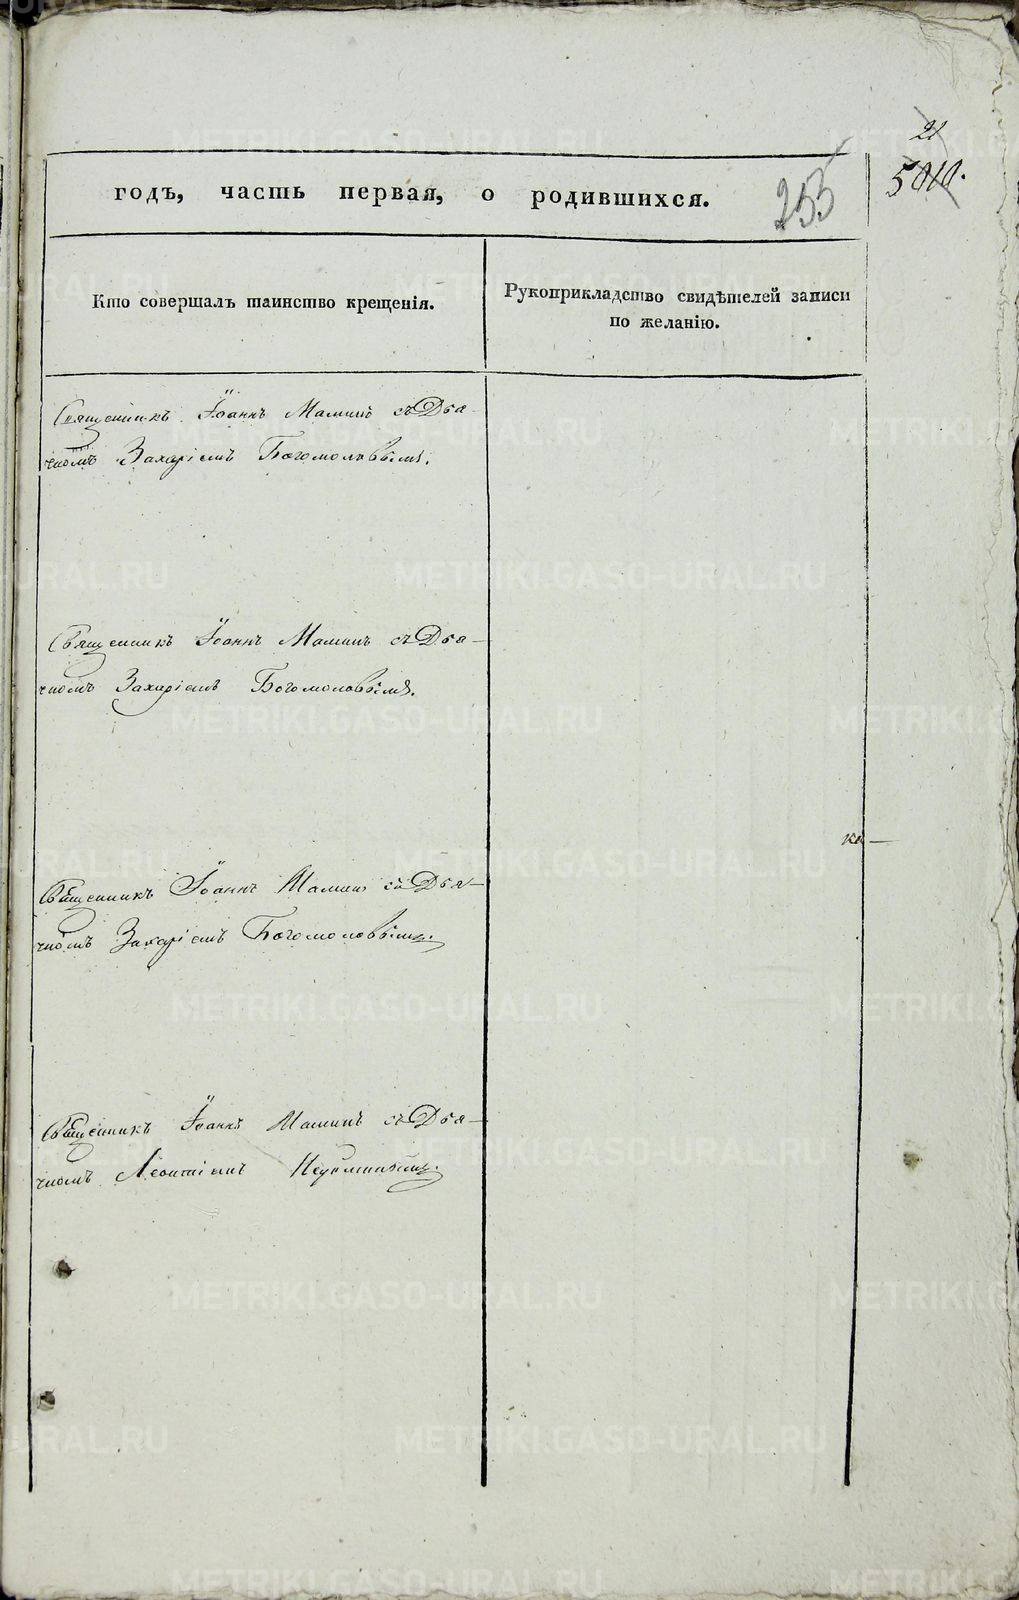 21
5010.
годъ, часть первая, о родившихся.
255
Кто совершалъ таинство крещенія.
Рукоприкладство свидѣтелей записи
по желанію.
Священникъ Іоаннъ Маминъ съ Дья-
чкомъ Захаріемъ Богомоловымъ.
Священникъ Іоаннъ Маминъ съ Дья-
чкомъ Захаріемъ Богомоловымъ.
ка-
Священникъ Іоаннъ Маминъ съ Дья-
чкомъ Захаріемъ Богомоловымъ.
Священникъ Іоаннъ Маминъ съ Дья-
чкомъ Леонтіемъ
METRIKI.GASO-URAL.RU